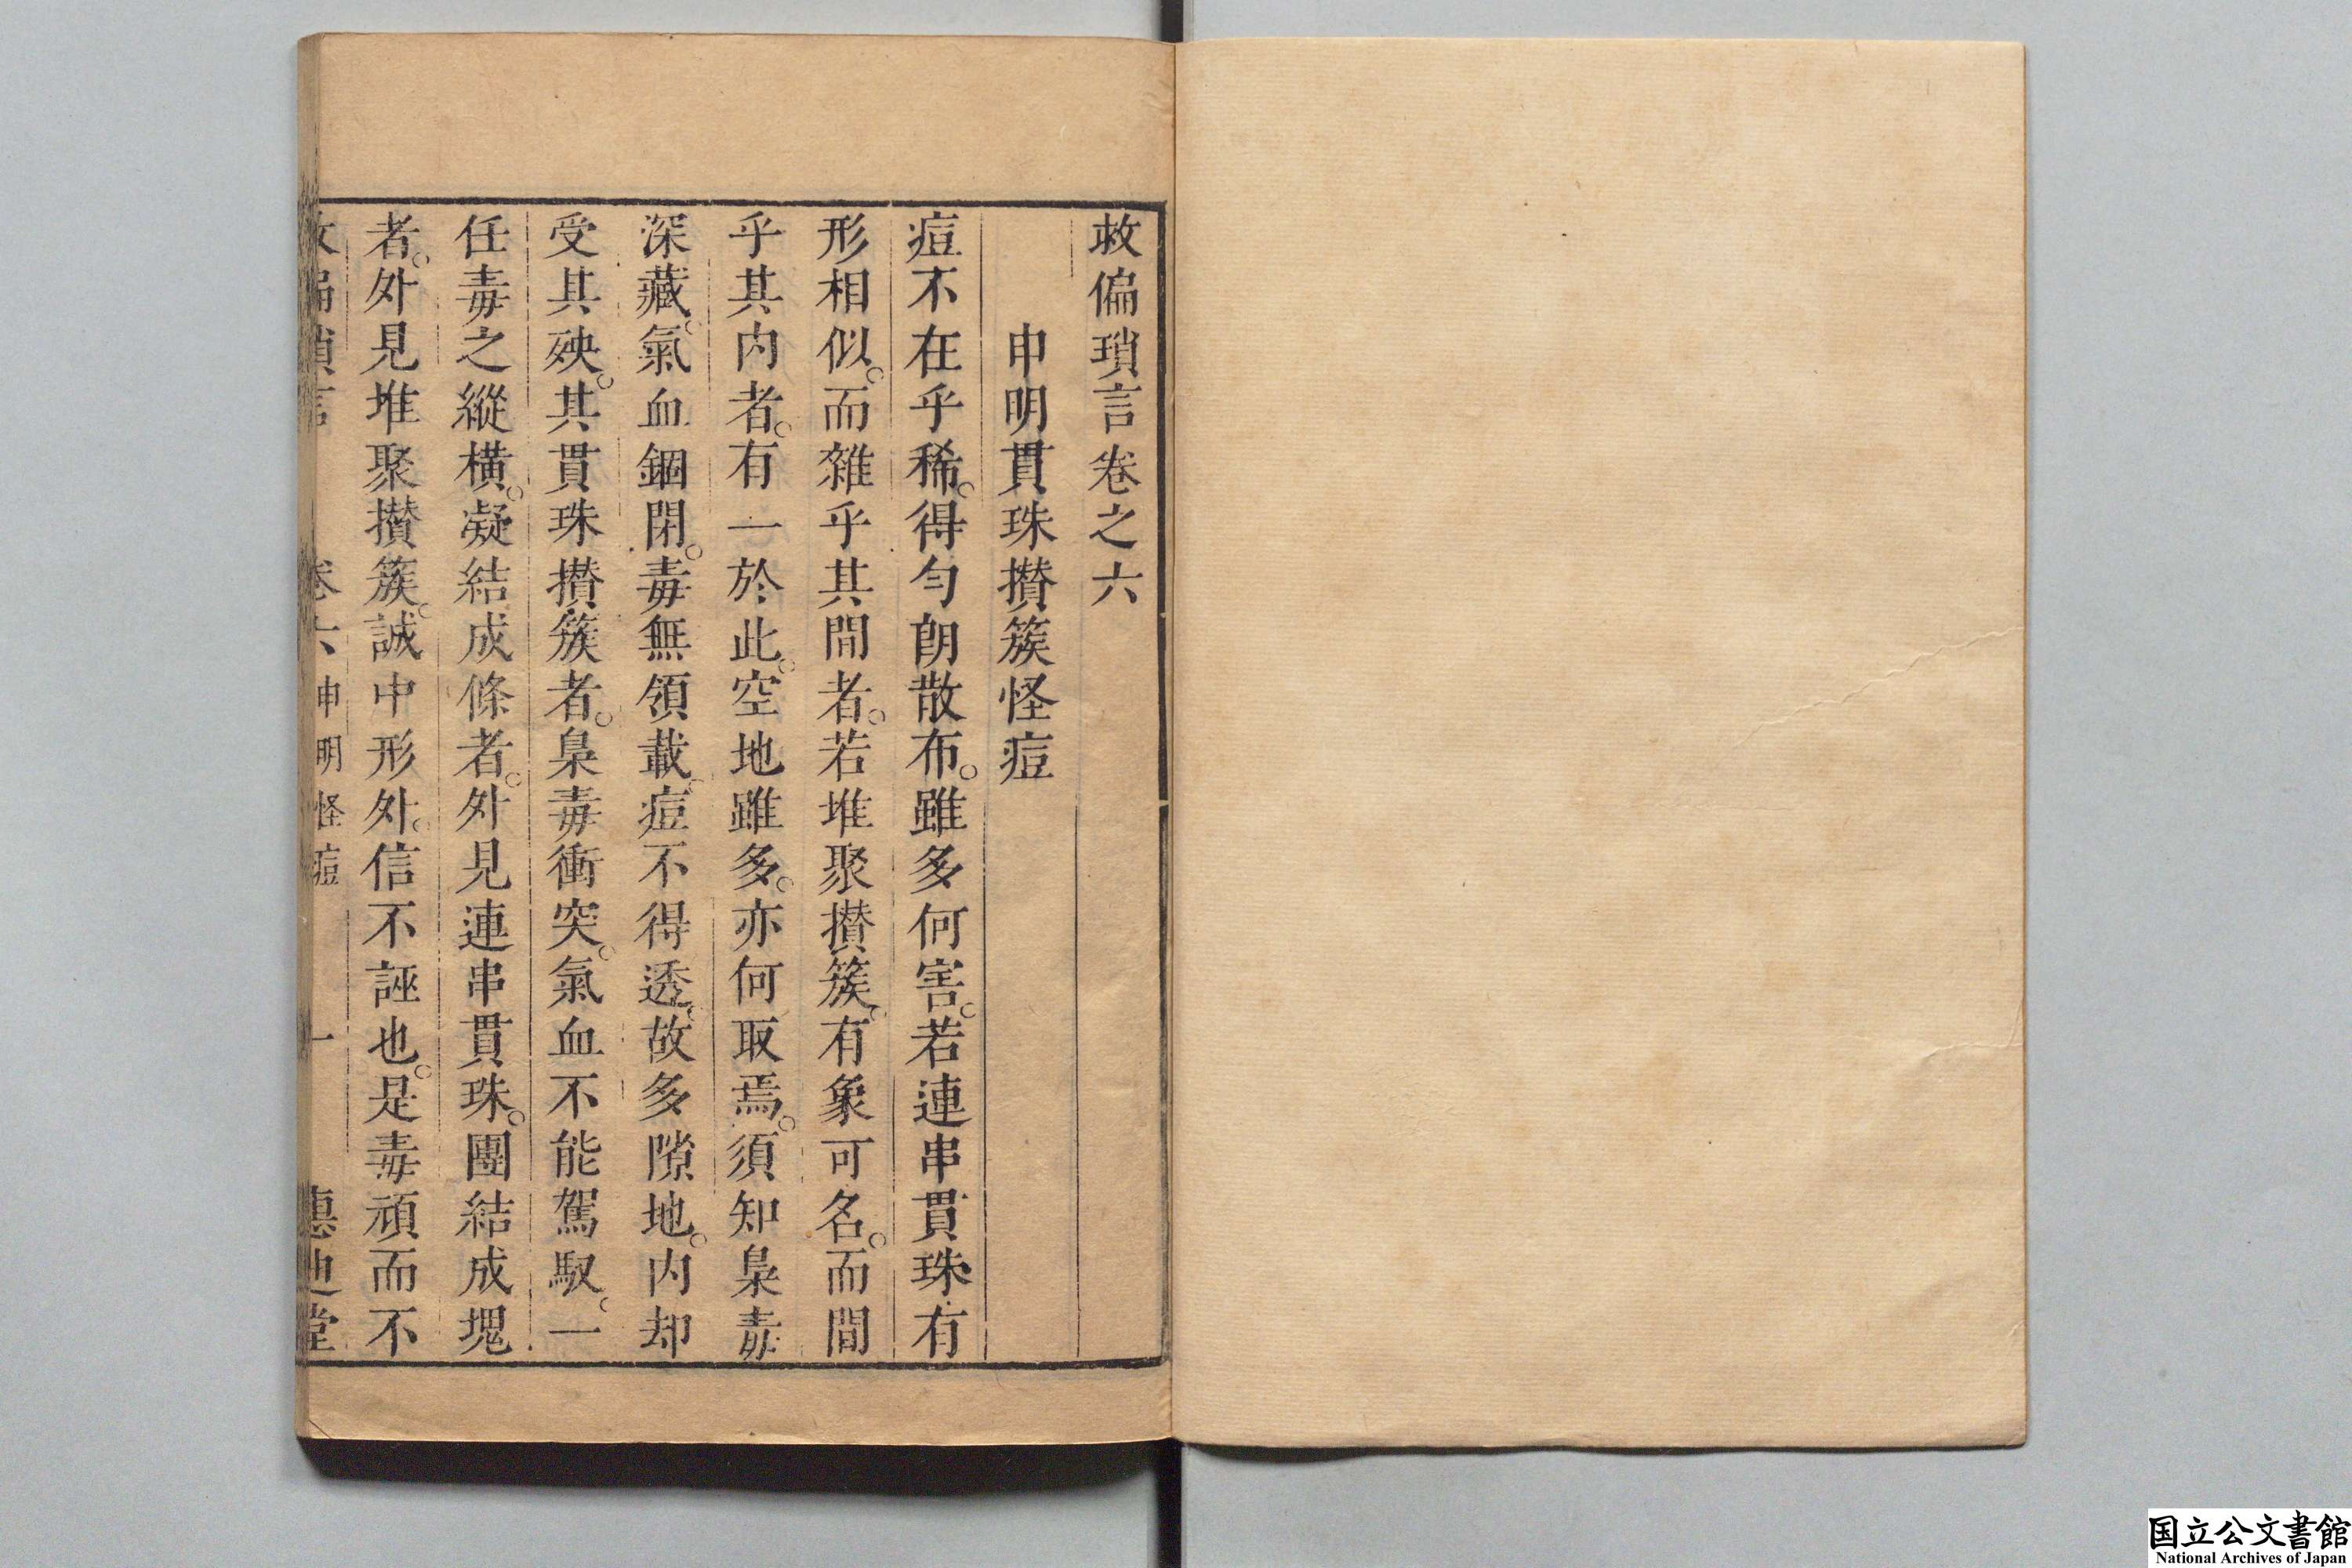 救偏瑣言卷之六
申明貫珠攅簇怪痘
痘不在乎稀。得勻朗散布。雖多何害。若連串貫珠有
形相似。而雜乎其間者。若堆聚攅簇。有象可名。而間
乎其内者。有一於此。空地雖多。亦何取焉。須知梟毒
深藏。氣血錮閉。毒無領載。痘不得透。故多隙地。内却
受其殃。其貫珠攅簇者。梟毒衝突。氣血不能駕馭。一
任毒之縱橫。凝結成條者。外見連串貫珠。團結成塊
者。外見堆聚攅簇。誠中形外。信不誣也。是毒頑而不
卷六 申明怪痘 一 惠迪堂
国立公文書館
National Archives of Japan